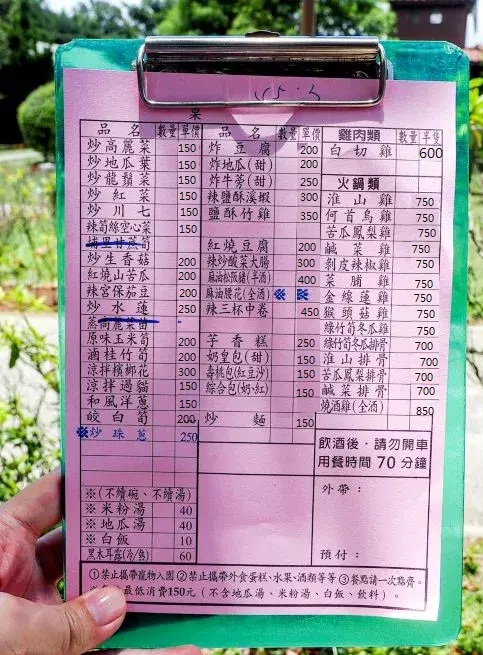 品名 數量 單價
炒高麗菜 150
炒地瓜葉 150
炒龍鬚菜 150
炒紅菜 150
炒川七 150
辣筍絲空心菜 150
埔里甘蔗筍
炒生香菇 200
紅燒山苦瓜 200
辣宮保茄豆 200
炒水蓮 250
蒸高麗菜苗
原味玉米筍 200
滷桂竹筍 200
涼拌檳榔花 300
涼拌過貓 150
和風洋蔥 150
皎白筍 200
※炒珠蔥 250
※(不續碗、不續湯)
※米粉湯 40
※地瓜湯 40
※白飯 10
黑木耳露(冷/熱) 60
品名 數量 單價
炸豆腐 200
炸地瓜(甜) 200
炸牛蒡(甜) 250
辣鹽酥溪蝦 300
鹽酥竹雞 350
紅燒豆腐 200
辣炒酸菜大腸 300
麻油松阪豬(半酒) 400
麻油腰花(全酒)
辣三杯中卷 450
芋香糕 250
奶皇包(甜) 150
壽桃包(紅豆沙) 150
綜合包(奶.紅) 150
炒麵 150
雞肉類 數量 半隻
白切雞 600
火鍋類
淮山雞 750
何首烏雞 750
苦瓜鳳梨雞 750
鹹菜雞 750
剝皮辣椒雞 750
菜脯雞 750
金線蓮雞 750
猴頭菇雞 750
綠竹筍冬瓜雞 750
綠竹筍冬瓜排骨 700
淮山排骨 700
苦瓜鳳梨排骨 700
鹹菜排骨 700
燒酒雞(全酒) 850
飲酒後．請勿開車
用餐時間70分鐘
外帶：
預付：
①禁止攜帶寵物入園②禁止攜帶外食蛋糕、水果、酒類等等③餐點請一次點齊。
最低消費150元(不含地瓜湯、米粉湯、白飯、飲料)。